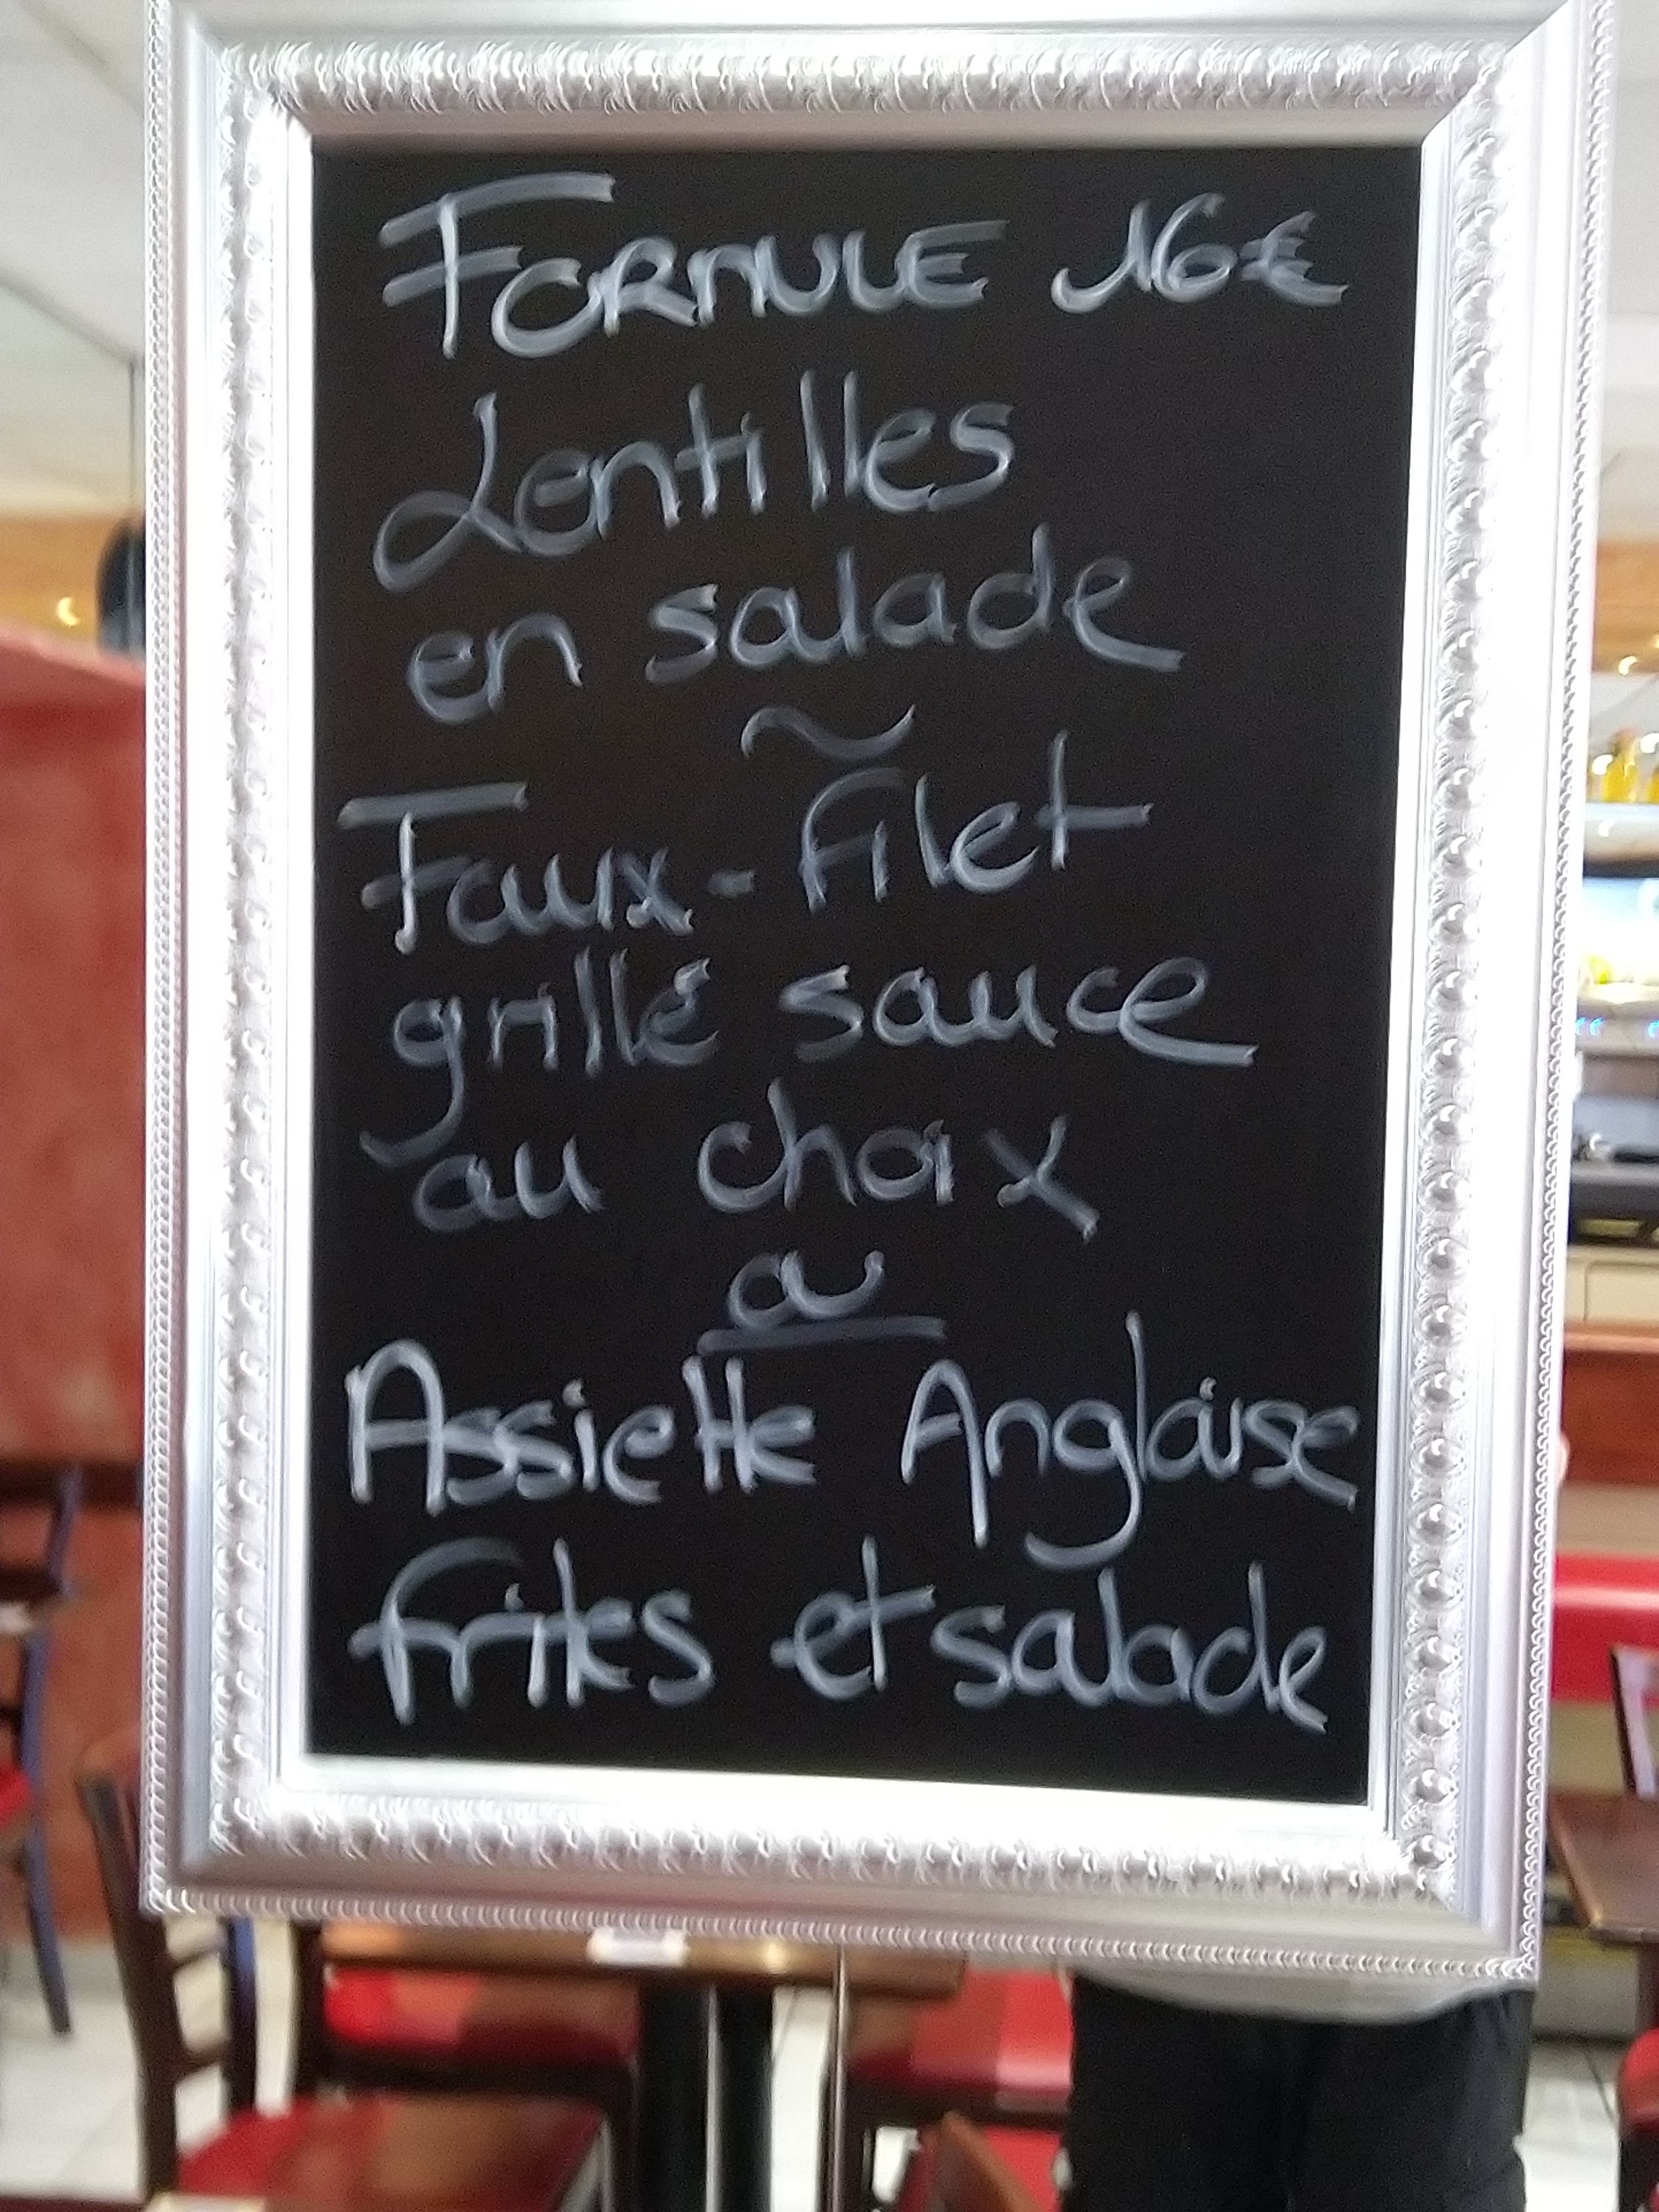 FORMULE 16€
Lentilles
en salade
~
Faux-filet
grillé sauce
au choix
ou
Assiette Anglaise
frites et salade